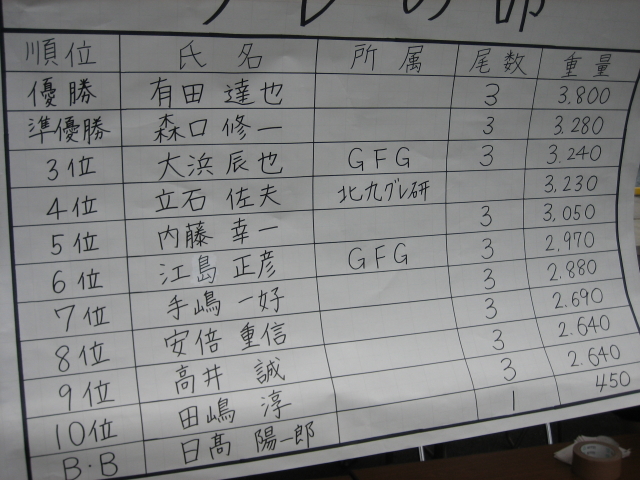 グレの部
順位 氏名 所属 尾数 重量
優勝 有田 達也 3 3.800
準優勝 森口 修一 3 3.280
3位 大浜 辰也 GFG 3 3.240
4位 立石 佐夫 北九グレ研 3.230
5位 内藤 幸一 3 3,050
6位 江島 正彦 GFG 3 2,970
7位 手嶋 一好 3 2.880
8位 安倍 重信 3 2.690
9位 高井 誠 3 2.640
10位 田嶋 淳 3 2.640
B・B 日髙 陽一郎 1 450